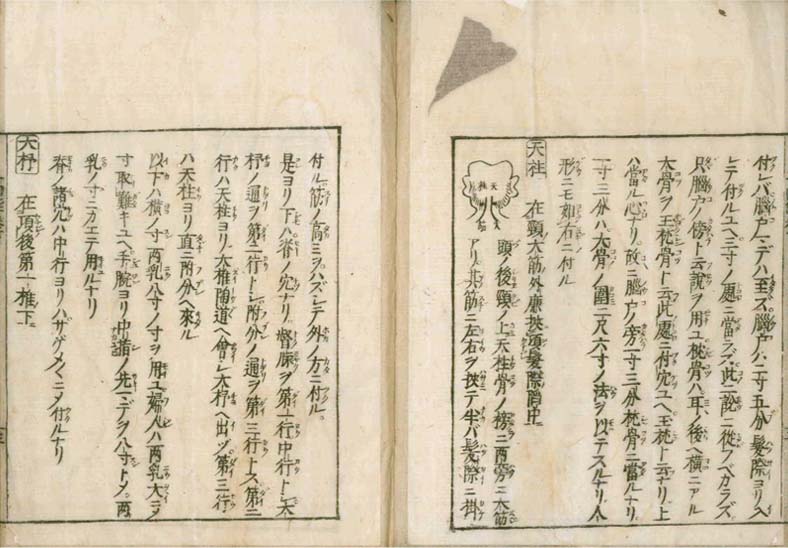 付レバ腦户マデハ至ズ腦户ハ二寸五分髮際ヨリ入
シテ付ルユヘ三寸ノ處ニ當ラズ此二説ニ從フベカラズ
只腦户ノ傍ト云説ヲ用ユ枕骨ハ耳ノ後ヘ横ニアル
大骨ヲ玉枕骨ト云此處ニ付穴ユヘ玉枕ト云ナリ上
ハ當ル心ナリ故ニ腦户ノ旁一寸三分枕骨ニ當ルナリ
一寸三分ハ大骨ノ圍二尺六寸ノ法ヲ以テスルナリ人
形ニモ如右ニ付ル
天柱 在頸大筋外廉挾項髮際陷中
天柱
頸ノ後頸ノ上天柱骨ノ榜ニ両旁ニ大筋
アリ其筋ニ左右ヲ挾テ半バ髮際ニ掛
付ル筋ノ高ミヲハズレテ外ノ方ニ付ル
是ヨリ下ハ脊ノ穴ナリ督脉ヲ第一行中行ト大
杼ノ通ヲ第二行トシ附分ノ通ヲ第三行トス第二
行ハ天柱ヨリ大椎陶道ヘ會シ大杼ヘ出ヅ第三行
ハ天柱ヨリ直ニ附分ヘ來ル
以下ハ横ノ寸両乳八寸ノ寸ヲ用ユ婦人ハ両乳大ニヲ
寸取難キユヘ手腕ヨリ中指ノ先マデヲ八寸トメ両
乳ノ寸ニカエテ用ルナリ
脊ノ諸穴ハ中行ヨリハサグメヽニメ付ルナリ
大杼 在項後第一椎下